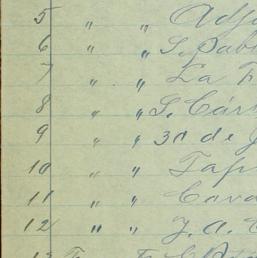 5 " " Adju
6 " " S. Pabl
7 " " La F
8 " " S. Cár
9 " " 30 de J
10 " " Tap
11 " " Cava
12 " " J. a. C